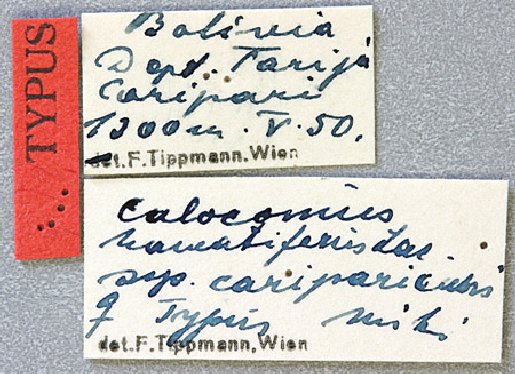 TYPUS
Bolivia
Dept. Tarija
Caripari
1300m. V. 50.
det.F.Tippmann,Wien
Calocomus
hamatiferus Lac.
ssp. cariparicensis
Typus mihi
det.F.Tippmann,Wien